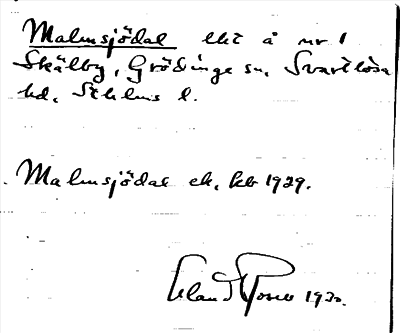 Malmsjödal lht å nr 1
Skälby, Grödinge sn, Svartlösa
hd, Sthlms l.
Malmsjödal ek, kb 1929.
Erland Rosell 1930.